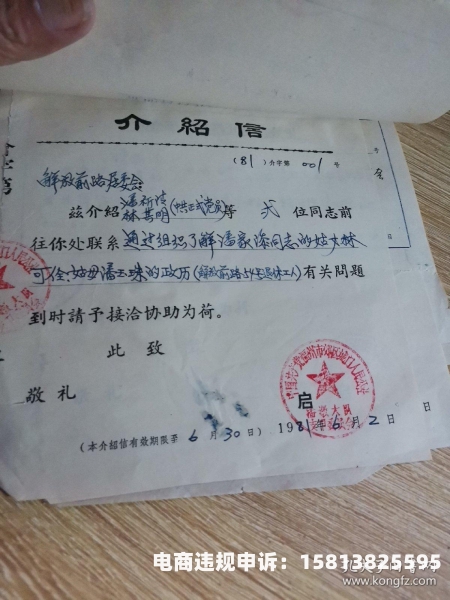 介紹信
(81)介字第 001 号
解放前路居委会
兹介紹 潘祈清 林其明 (中共正式党员)等 弍 位同志前
往你处联系 通过组织了解潘家滌同志的姑丈林
可金、姑母潘玉珠的政历(解放前路 退休工人)有关問題
到时請予接洽协助为荷。
此 致
敬 礼
启
(本介紹信有效期限至 6 月 30 日) 1981年 6 月 2 日
电商违规申诉：15813825595
www.kongfz.com